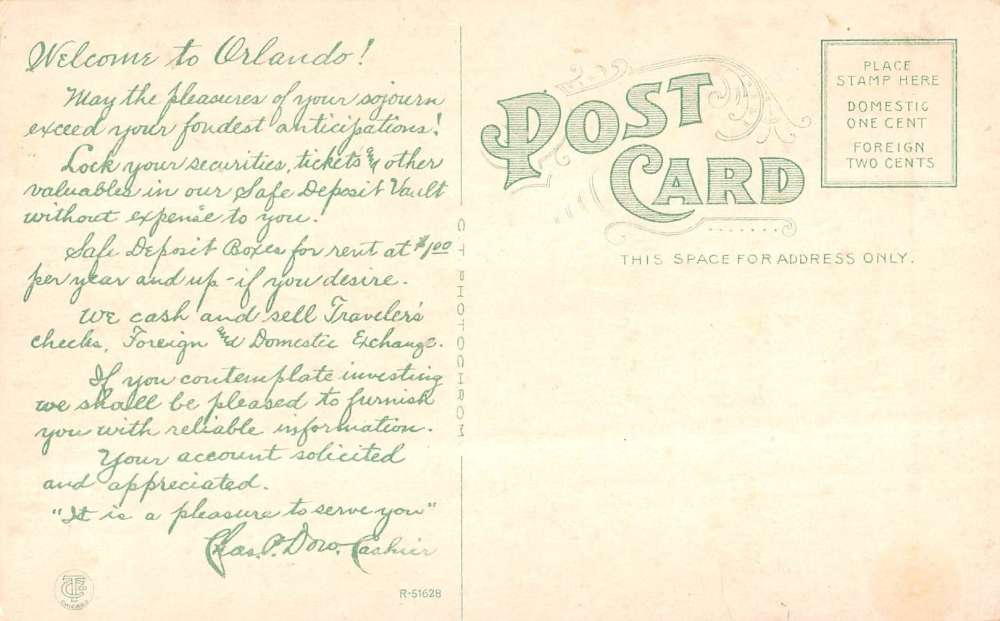 Welcome to Orlando!
May the pleasures of your sojourn
exceed your fondest anticipations!
Lock your securities, tickets & other
valuables in our Safe Deposit Vault
without expense to you.
Safe Deposit Boxes for rent at $1.00
per year and up - if you desire.
We cash and sell Travelers
checks, Foreign and Domestic Exchange.
If you contemplate investing
we shall be pleased to furnish
you with reliable information.
Your account solicited
and appreciated.
"It is a pleasure to serve you"
Chas. P. Dow, Cashier
R-51628
CHICAGO
C T PHOTOCHROM
POST
CARD
THIS SPACE FOR ADDRESS ONLY.
PLACE
STAMP HERE
DOMESTIC
ONE CENT
FOREIGN
TWO CENTS